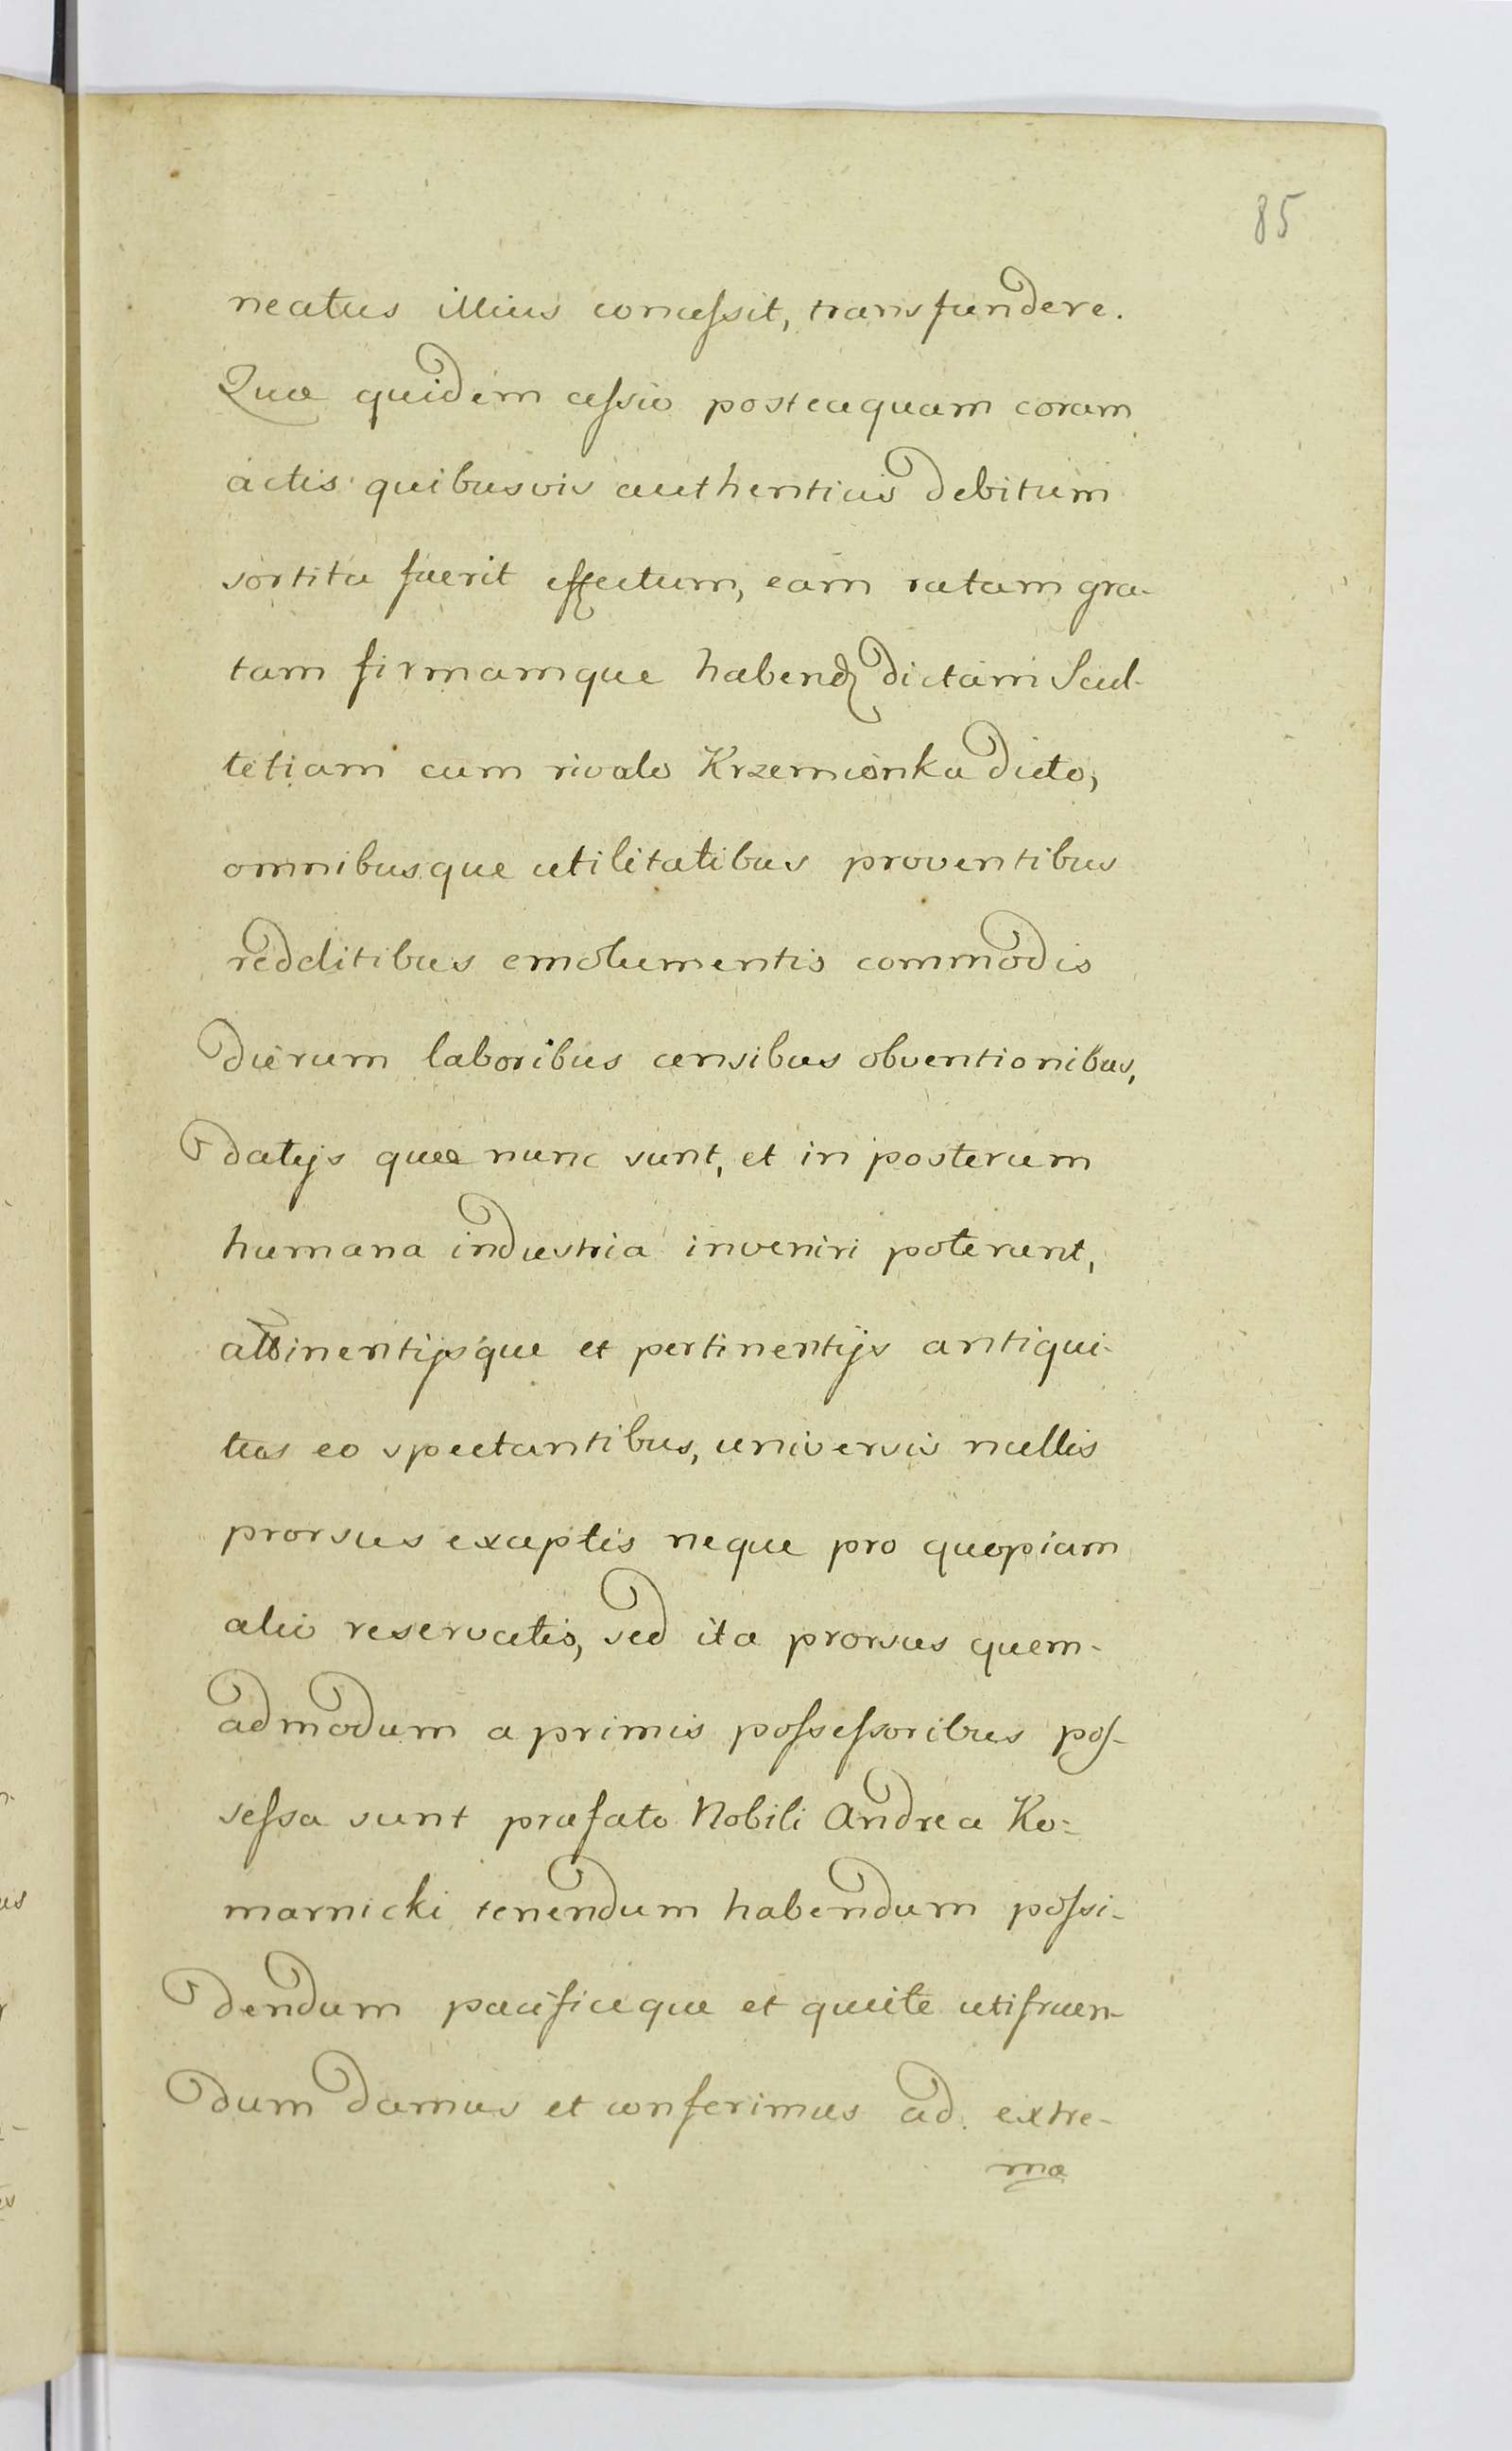 85
neatus illius concessit, transfundere.
Quæ quidem cessio posteaquam coram
actis quibusvis authenticis debitum
sortita fuerit effectum, eam ratam gra-
tam firmamque habend dictam Scul-
tetiam cum rivulo Krzemionka dicto,
omnibusque utilitatibus proventibus
redditibus emolumentis commodis
dierum laboribus censibus obventionibus,
datijs quæ nunc sunt, et in posterum
humana industria inveniri poterunt,
attinentijsque et pertinentijs antiqui-
tus eo spectantibus, universis nullis
prorsus exceptis neque pro quopiam
alio reservatis, sed ita prorsus quem-
admodum a primis possessoribus pos-
sessa sunt præfato Nobili Andrea Ko=
marnicki tenendum habendum possi-
dendum pacificeque et quiete utifruen-
dum damus et conferimus ad extre-
ma